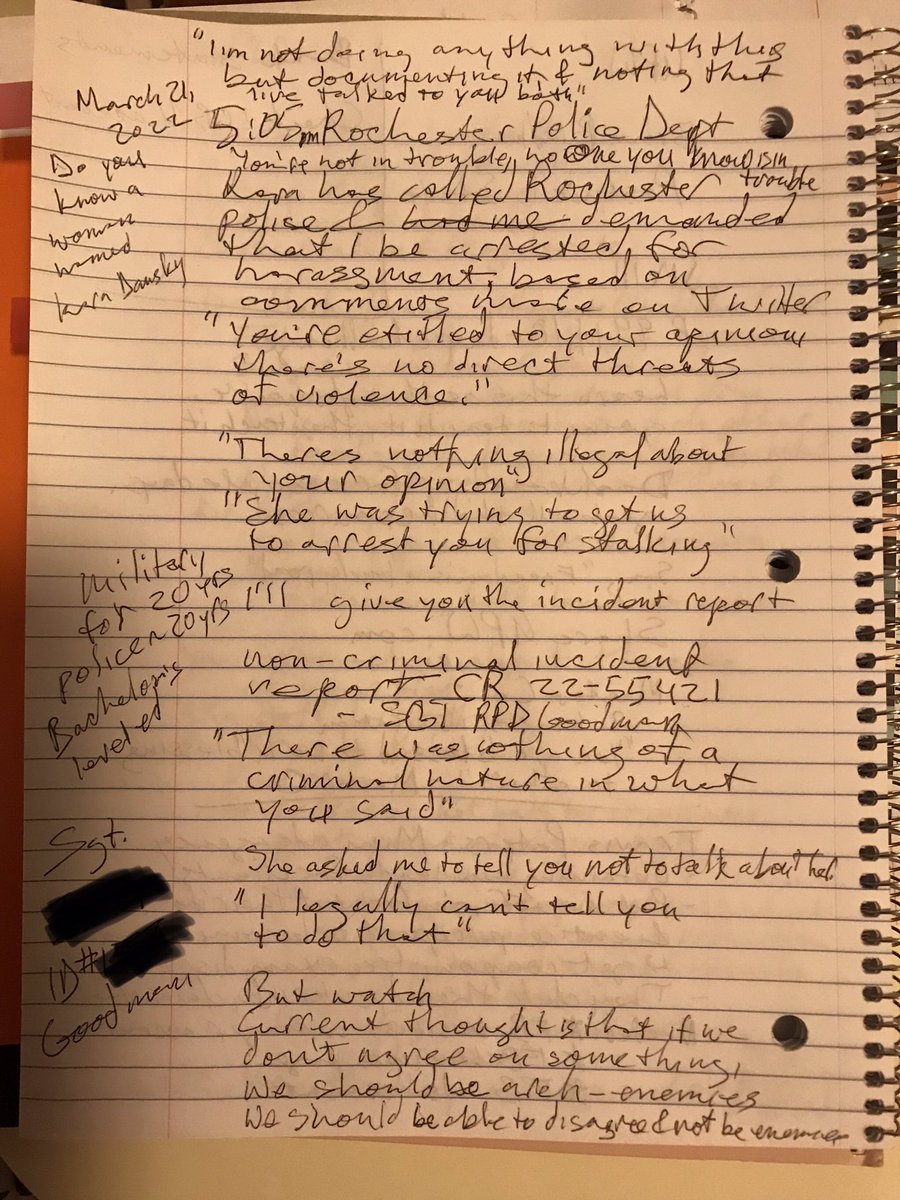 "I'm not doing anything with this
but documenting it & noting that
I've talked to you both"
March 21,
2022
5:05pm Rochester Police Dept
Do you
know a
woman
named
Kara Dansky
You're not in trouble, no one you know is in
trouble
Kara has called Rochester
police & had me demanded
that I be arrested, for
harassment, based on
comments made on Twitter
"You're etitled to your opinion
there's no direct threats
of violence."
"Theres nothing illegal about
your opinion"
"She was trying to get us
to arrest you for stalking"
Military
for 20 yrs
police 20 yrs
Bachelor's
level ed
I'll give you the incident report
non-criminal incident
report CR 22-55421
- SGT RPD Goodman
"There was nothing of a
criminal nature in what
you said"
Sgt.
ID#1
Goodman
She asked me to tell you not to talk about her.
"I legally can't tell you
to do that"
But watch
Current thought is that if we
don't agree on something,
we should be arch-enemies
We should be able to disagree & not be enemies